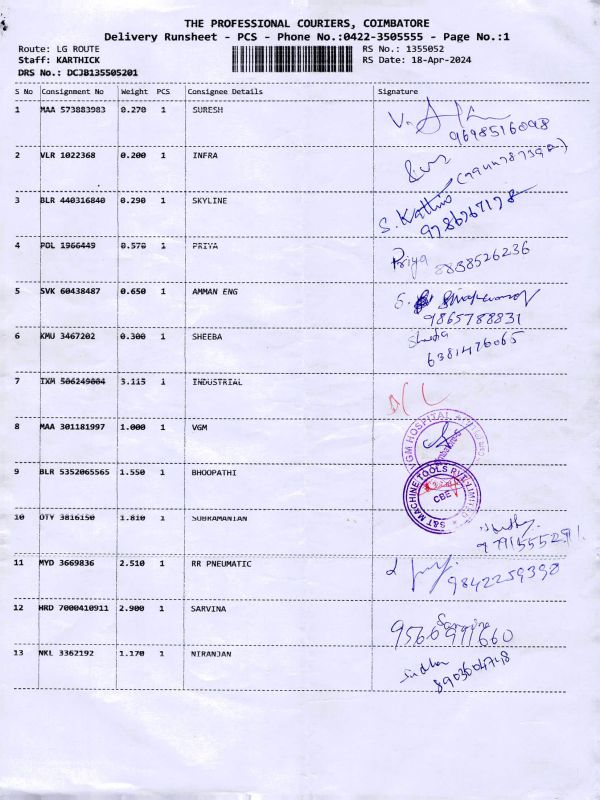 THE PROFESSIONAL COURIERS, COIMBATORE
Delivery Runsheet - PCS - Phone No.:0422-3505555 - Page No.:1
Route: LG ROUTE RS No.: 1355052
Staff: KARTHICK RS Date: 18-Apr-2024
DRS No.: DCJB135505201
S No Consignment No Weight PCS Consignee Details Signature
1 MAA 573883983 0.270 1 SURESH
9698516098
2 VLR 1022368 0.200 1 INFRA
3 BLR 440316840 0.290 1 SKYLINE S. Karthi
9786767178
4 POL 1966449 0.570 1 PRIYA Priya 8838526236
5 SVK 60438487 0.650 1 AMMAN ENG
9865788831
6 KMU 3467202 0.300 1 SHEEBA Sheeba
6381476065
7 IXM 506249004 3.115 1 INDUSTRIAL
8 MAA 301181997 1.000 1 VGM VGM HOSPITAL
9 BLR 5352065565 1.550 1 BHOOPATHI S&T MACHINE TOOLS PVT LIMITED
CBE
10 OTY 3816150 1.810 1 SUBRAMANIAN
11 MYD 3669836 2.510 1 RR PNEUMATIC 9842259390
12 HRD 7000410911 2.900 1 SARVINA
9566991660
13 NKL 3362192 1.170 1 NIRANJAN Sudha
8903604748